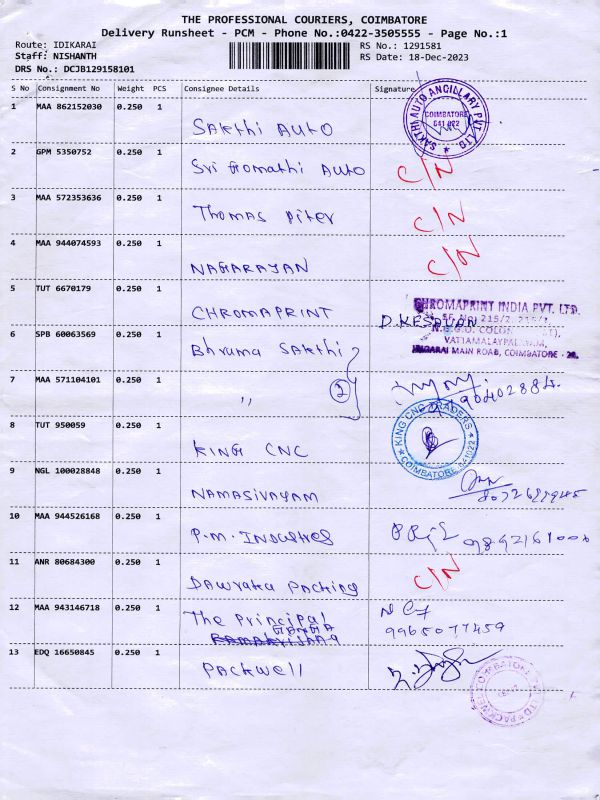 THE PROFESSIONAL COURIERS, COIMBATORE
Delivery Runsheet - PCM - Phone No.:0422-3505555 - Page No.:1
Route: IDIKARAI RS No.: 1291581
Staff: NISHANTH RS Date: 18-Dec-2023
DRS No.: DCJB129158101
S No Consignment No Weight PCS Consignee Details Signature
1 MAA 862152030 0.250 1 SAKthi AUTO
SAKTHI AUTO ANCILLARY PVT. LTD. COIMBATORE 641 022
2 GPM 5350752 0.250 1 Sri Gomathi AUTO C/N
3 MAA 572353636 0.250 1 Thomas Piter C/N
4 MAA 944074593 0.250 1 NAGARAJAN C/N
5 TUT 6670179 0.250 1 CHROMAPRINT D.KESAVAN
CHROMAPRINT INDIA PVT. LTD.
SF. No: 215/2,
N.G.G.O. COLONY
VATTAMALAYPALAYAM,
IDIGARAI MAIN ROAD, COIMBATORE
6 SPB 60063569 0.250 1 Bhruma SAKthi
7 MAA 571104101 0.250 1 " 2
8 TUT 950059 0.250 1 KING CNC
KING CNC TRADERS COIMBATORE 641022
9 NGL 100028848 0.250 1 NAMASIVAYAM
10 MAA 944526168 0.250 1 P.M. INDUSTRES
11 ANR 80684300 0.250 1 DAWRAKA PACKING C/N
12 MAA 943146718 0.250 1 The Principal
GANGA
9965077459
13 EDQ 16650845 0.250 1 PACKWELL